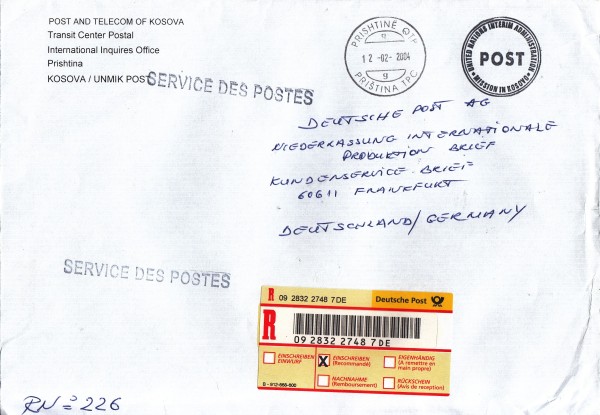 POST AND TELECOM OF KOSOVA
Transit Center Postal
International Inquires Office
Prishtina
KOSOVA / UNMIK POST
SERVICE DES POSTES
PRISHTINË QTP
g
12 -02- 2004
g
PRIŠTINA TPC
UNITED NATIONS INTERIM ADMINISTRATION
POST
MISSION IN KOSOVO
DEUTSCHE POST AG
NIEDERLASSUNG INTERNATIONALE
PRODUKTION BRIEF
KUNDENSERVICE BRIEF
60611 FRANKFURT
DEUTSCHLAND/GERMANY
SERVICE DES POSTES
R 09 2832 2748 7 DE
Deutsche Post
R
09 2832 2748 7 DE
EINSCHREIBEN EINWURF
X EINSCHREIBEN (Recommandé)
EIGENHÄNDIG (A remettre en main propre)
NACHNAHME (Remboursement)
RÜCKSCHEIN (Avis de reception)
912-666-600
RN = 226